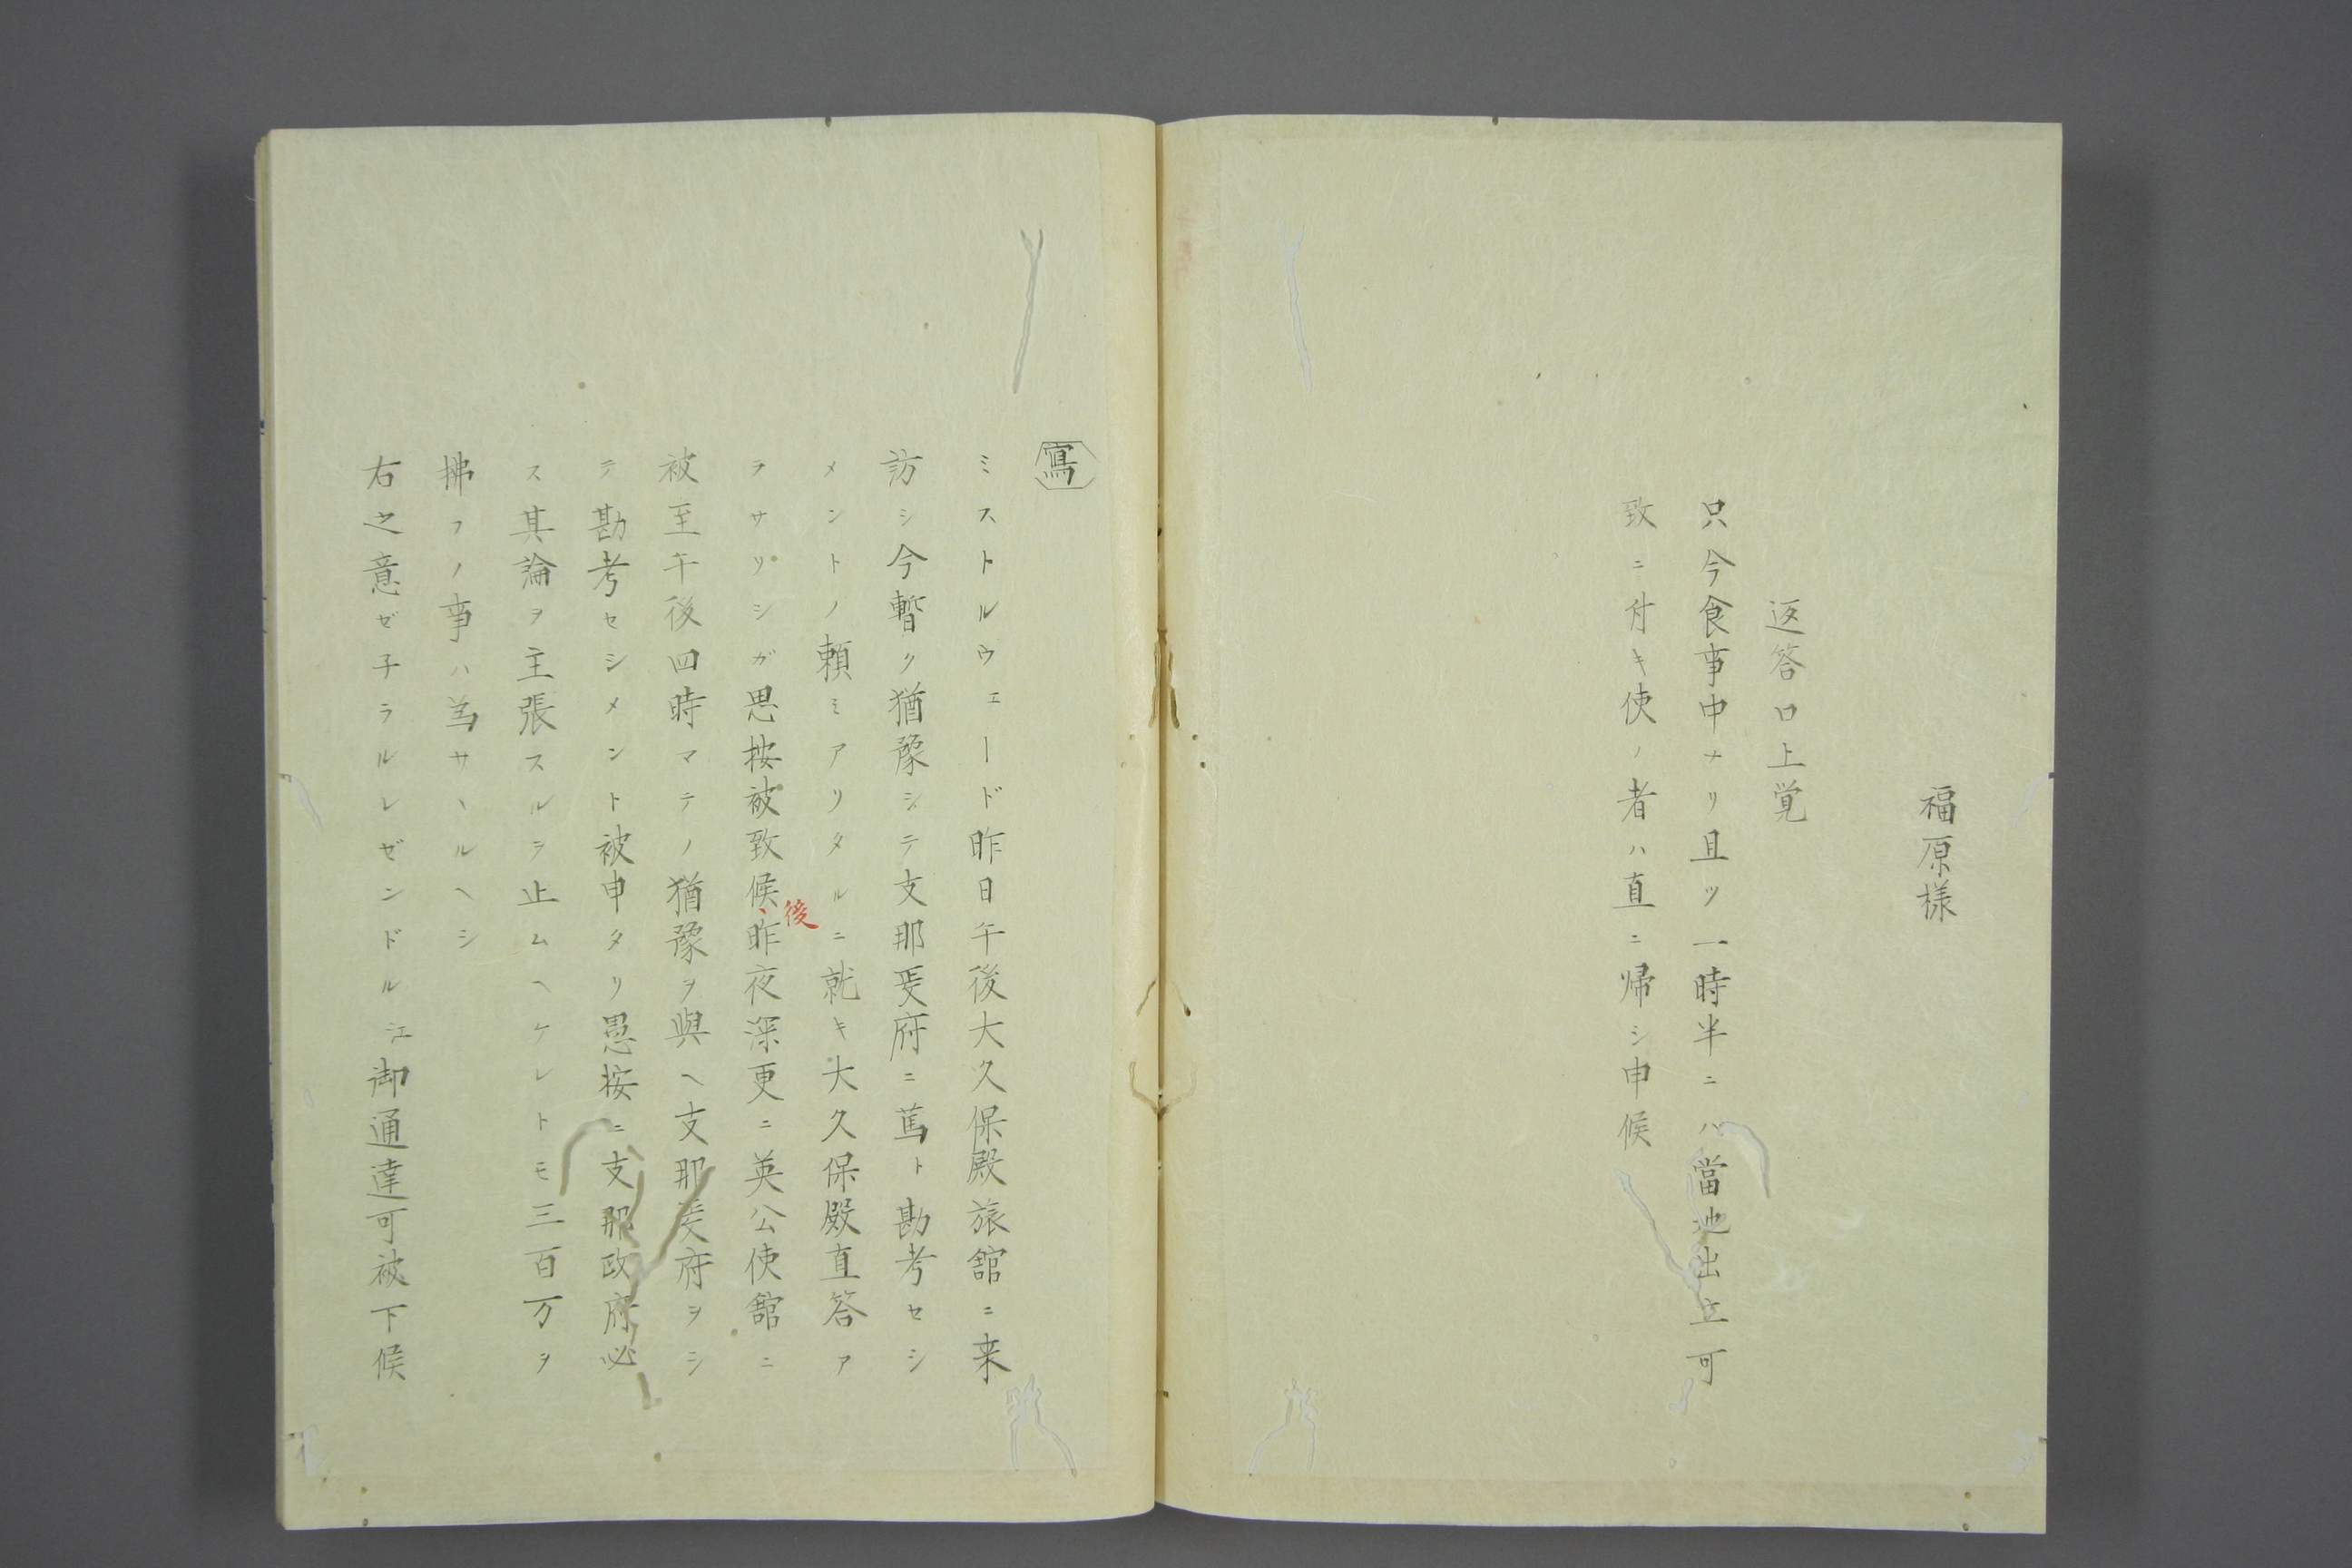 福原様
返答口上覚
只今食事中ナリ且ツ一時半ニハ當地出立可
致ニ付キ使ノ者ハ直ニ帰シ申候
寫
ミストルウェード昨日午後大久保殿旅舘ニ来
訪シ今暫ク猶豫シテ支那政府ニ篤ト勘考セシ
メントノ頼ミアリタルニ就キ大久保殿直答ア
ラサリシガ思按被致候後昨夜深更ニ英公使舘ニ
被至午後四時マテノ猶豫ヲ與ヘ支那政府ヲシ
テ勘考セシメント被申タリ愚按ニ支那政府必
ス其論ヲ主張スルヲ止ムヘケレトモ三百万ヲ
拂フノ事ハ為サヽルヘシ
右之意ゼ子ラルレゼンドル江御通達可被下候